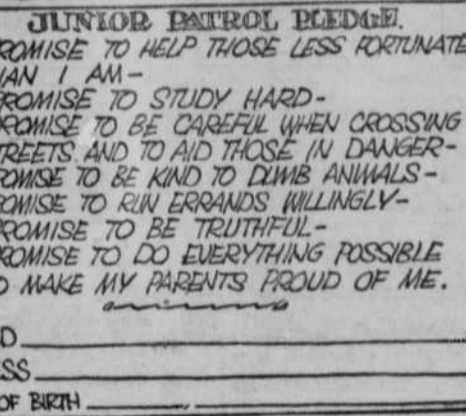 JUNIOR PATROL PLEDGE.
ROMISE TO HELP THOSE LESS FORTUNATE
HAN I AM-
ROMISE TO STUDY HARD-
ROMISE TO BE CAREFUL WHEN CROSSING
TREETS AND TO AID THOSE IN DANGER-
ROMISE TO BE KIND TO DUMB ANIMALS-
ROMISE TO RUN ERRANDS WILLINGLY-
ROMISE TO BE TRUTHFUL-
ROMISE TO DO EVERYTHING POSSIBLE
O MAKE MY PARENTS PROUD OF ME.
D
SS
OF BIRTH